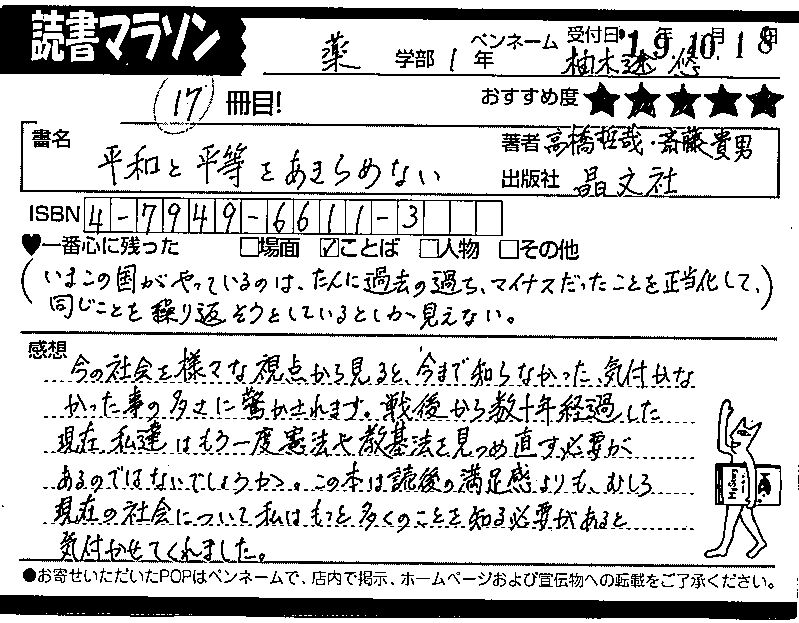 読書マラソン
薬 学部 1 年 ペンネーム 柚木遼 悠 受付日 '1 9年10月18日
17 冊目! おすすめ度 ★★★★★
書名 平和と平等をあきらめない
著者 高橋哲哉・斎藤貴男
出版社 晶文社
ISBN 4-7949-6611-3
♥一番心に残った □場面 ☑ことば □人物 □その他
(いまこの国がやっているのは、たんに過去の過ち、マイナスだったことを正当化して、
同じことを繰り返そうとしているとしか見えない。)
感想
今の社会を様々な視点から見ると、今まで知らなかった、気付かな
かった事の多さに驚かされます。戦後から数十年経過した
現在、私達はもう一度憲法や教基法を見つめ直す必要が
あるのではないでしょうか。この本は読後の満足感よりも、むしろ
現在の社会について私はもっと多くのことを知る必要があると
気付かせてくれました。
●お寄せいただいたPOPはペンネームで、店内で掲示、ホームページおよび宣伝物への転載をご了承ください。